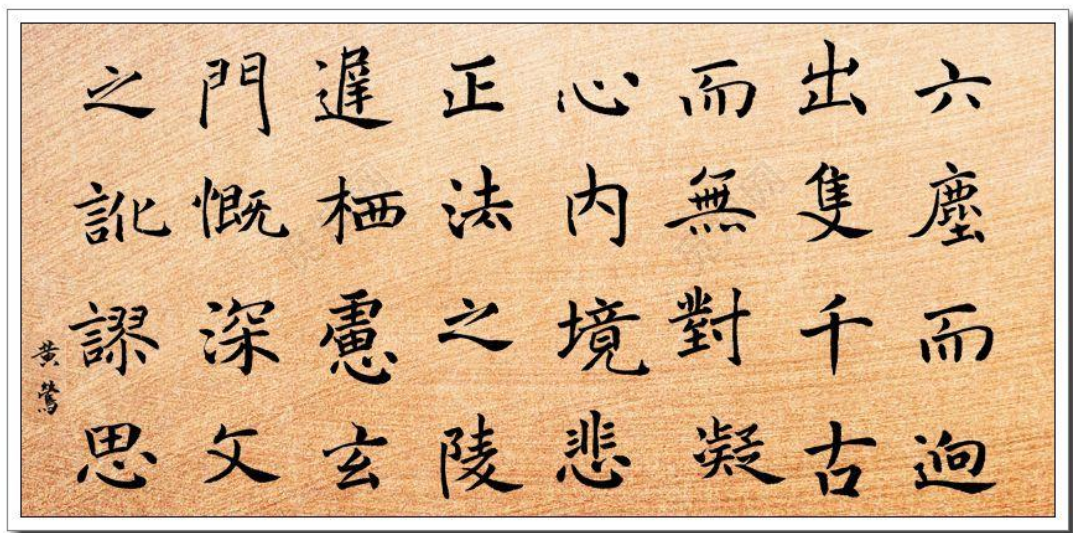 六塵而逈
出隻千古
而無對凝
心内境悲
正法之陵
遲栖慮玄
門慨深文
之訛謬思
黄鶯